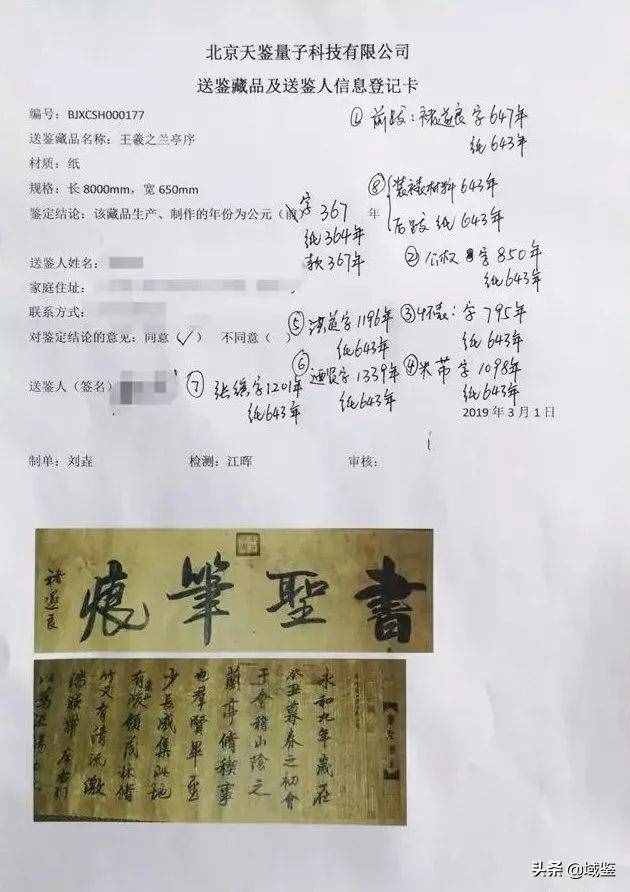 北京天鉴量子科技有限公司
送鉴藏品及送鉴人信息登记卡
编号：BJXCSH000177
① 前跋：褚遂良 字647年
纸643年
送鉴藏品名称：王羲之兰亭序
材质：纸
规格：长 8000mm，宽 650mm
⑧ 装裱材料643年
后跋纸643年
鉴定结论：该藏品生产、制作的年份为公元（前 年
字367
纸364年
款367年
② 公权 字850年
纸643年
送鉴人姓名：
家庭住址：
联系方式：
⑤ 字1196年
纸643年
③ 怀素：字795年
纸643年
对鉴定结论的意见：同意（✓） 不同意（ ）
⑥ 字1339年
纸643年
④ 米芾 字1098年
纸643年
送鉴人（签名）
⑦ 字1201年
纸643年
2019 年 3 月 1 日
制单：刘垚 检测：江晖 审核：
書聖筆痕
褚遂良
永和九年歲在
癸丑暮春之初會
于會稽山陰之
蘭亭脩稧事
也羣賢畢至
少長咸集此地
有峻領茂林脩
竹又有清流激
湍暎帶左右引
头条 @域鉴